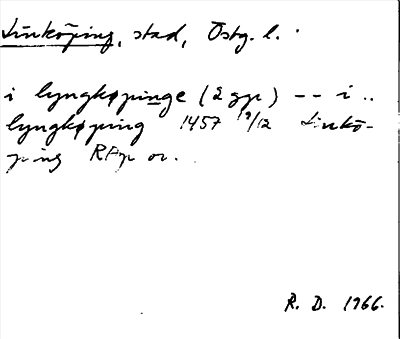 Linköping, stad, Östg. l.
i lyngkøpinge (2 ggr) -- i ..
lyngkøping 1457 19/12 Linkö-
ping RAp or.
R. D. 1966.